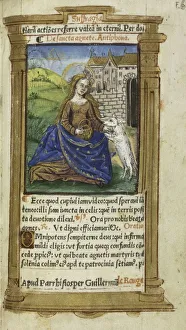 Suffragia
ctione referre valeā in eternū. Per do
De sancta agnete. Antiphona.
Ecce quod cupiui iam video: quod speraui iā
teneo: illi sum iuncta in celis quē in terris posi
ta deuotione dilexi.
Ut digni efficiamur. Oratio
Omnipotens sempiterne deus qui infirma
mūdi eligis vt fortia queqȝ confundas: cō
cede
vt qui beate agnetis martyris tue
solēnia colim eiꝰ apd te patrocinia sētiam
Apud Parrhisios per Guillermū le Rouge.